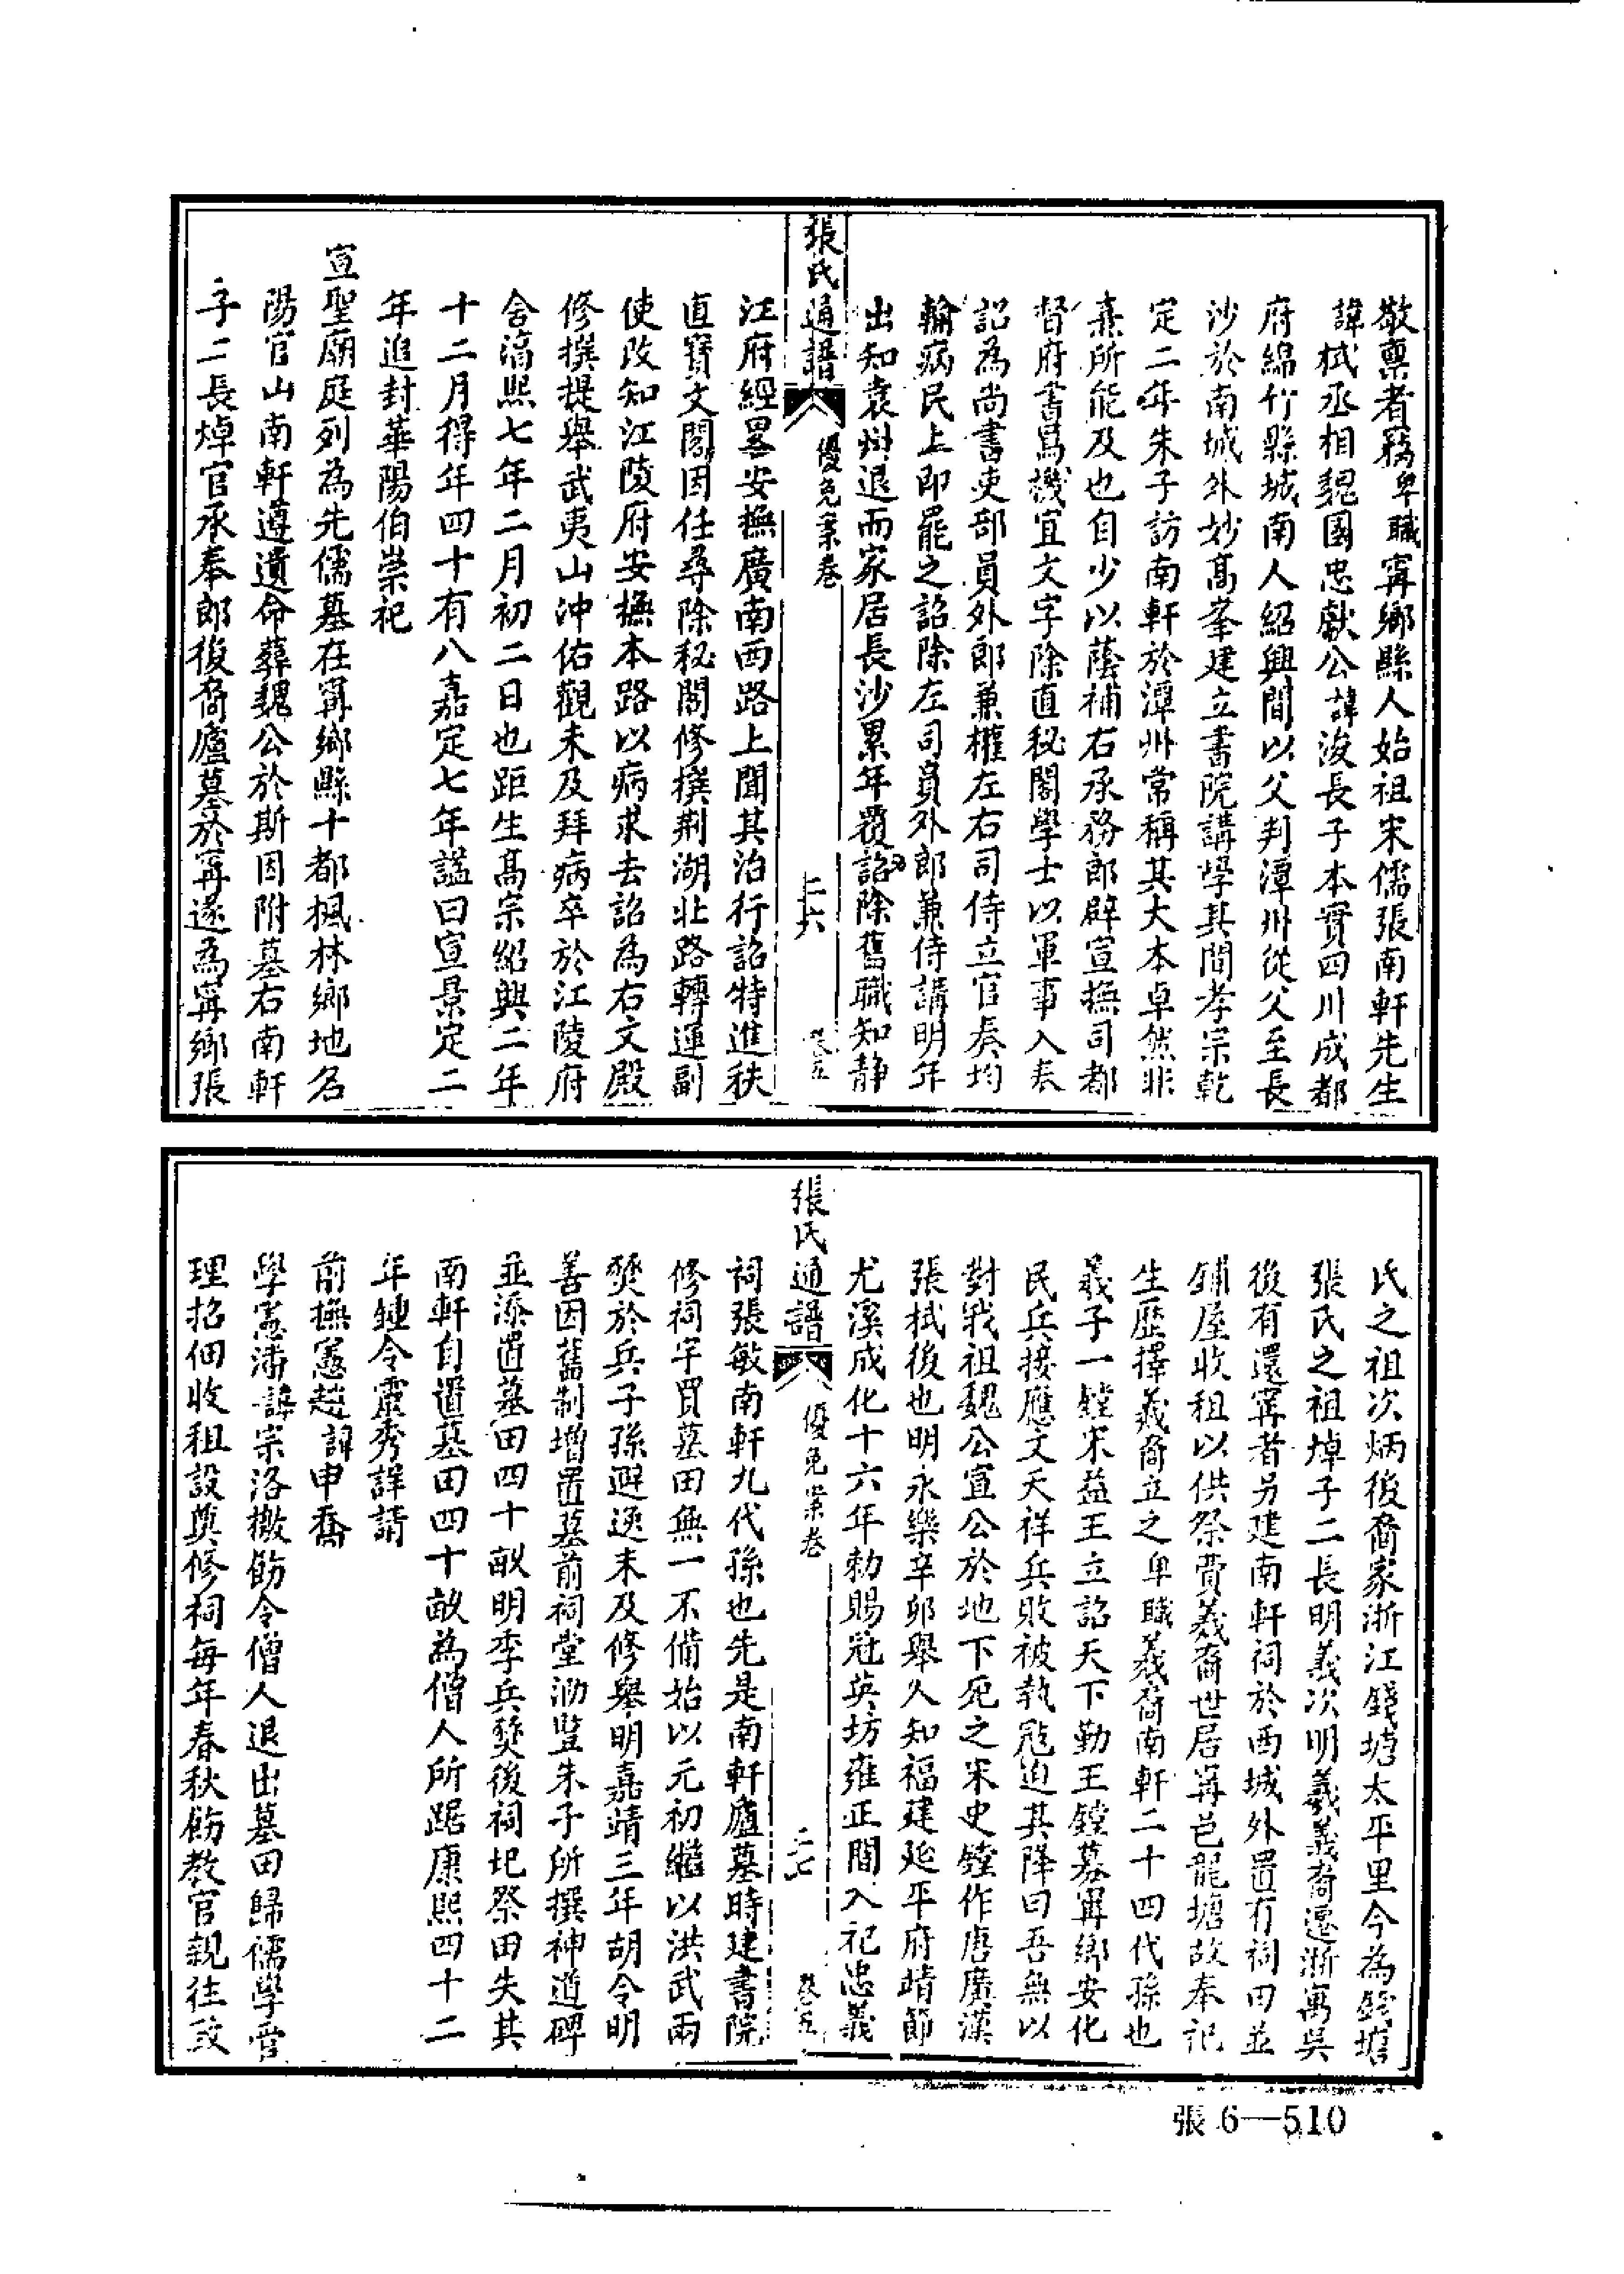 敬稟者竊卑職寗鄉縣人始祖宋儒張南軒先生
諱栻丞相魏國忠獻公諱浚長子本實四川成都
府綿竹縣城南人紹興間以父判潭州從父至長
沙於南城外妙高峯建立書院講學其間孝宗乾
定二年朱子訪南軒於潭州常稱其大本卓然非
熹所能及也自少以蔭補右承務郎辟宣撫司都
督府書寫機宜文字除直秘閣學士以軍事入奏
詔為尚書吏部員外郎兼權左右司侍立官奏均
輸病民上即罷之詔除左司員外郎兼侍講明年
出知袁州退而家居長沙累年覆詔除舊職知靜
張氏通譜
優免案卷
二六
卷五
江府經畧安撫廣南西路上聞其治行詔特進秩
直寶文閣因任尋除秘閣修撰荆湖北路轉運副
使改知江陵府安撫本路以病求去詔為右文殿
修撰提舉武夷山沖佑觀未及拜病卒於江陵府
舍淳熙七年二月初二日也距生高宗紹興二年
十二月得年四十有八嘉定七年謚曰宣景定二
年追封華陽伯崇祀
宣聖廟庭列為先儒墓在寗鄉縣十都楓林鄉地名
陽官山南軒遵遺命葬魏公於斯因附墓右南軒
子二長焯官承奉郎後裔廬墓於寗遂為寗鄉張
氏之祖次炳後裔家浙江錢塘太平里今為錢塘
張氏之祖焯子二長明義次明羲義裔還浙寓吳
後有還寗者另建南軒祠於西城外置有祠田並
鋪屋收租以供祭費羲裔世居寗邑龍塘故奉祀
生歷擇羲裔立之卑職羲裔南軒二十四代孫也
羲子一鏜宋益王立詔天下勤王鏜募寗鄉安化
民兵接應文天祥兵敗被執寇迫其降曰吾無以
對我祖魏公宣公於地下死之宋史鏜作唐廣漢
張栻後也明永樂辛卯舉人知福建延平府靖節
尤溪成化十六年勅賜冠英坊雍正間入祀忠義
張氏通譜
優免案卷
二七
卷五
祠張敏南軒九代孫也先是南軒廬墓時建書院
修祠宇買墓田無一不備始以元初繼以洪武兩
燹於兵子孫避逸未及修舉明嘉靖三年胡令明
善因舊制增置墓前祠堂泐豎朱子所撰神道碑
並添置墓田四十畝明季兵燹後祠圮祭田失其
南軒自置墓田四十畝為僧人所踞康熙四十二
年鍾令靈秀詳請
前撫憲趙諱申喬
學憲潘諱宗洛檄飭令僧人退出墓田歸儒學官
理招佃收租設奠修祠每年春秋飭教官親往致
張 6—510